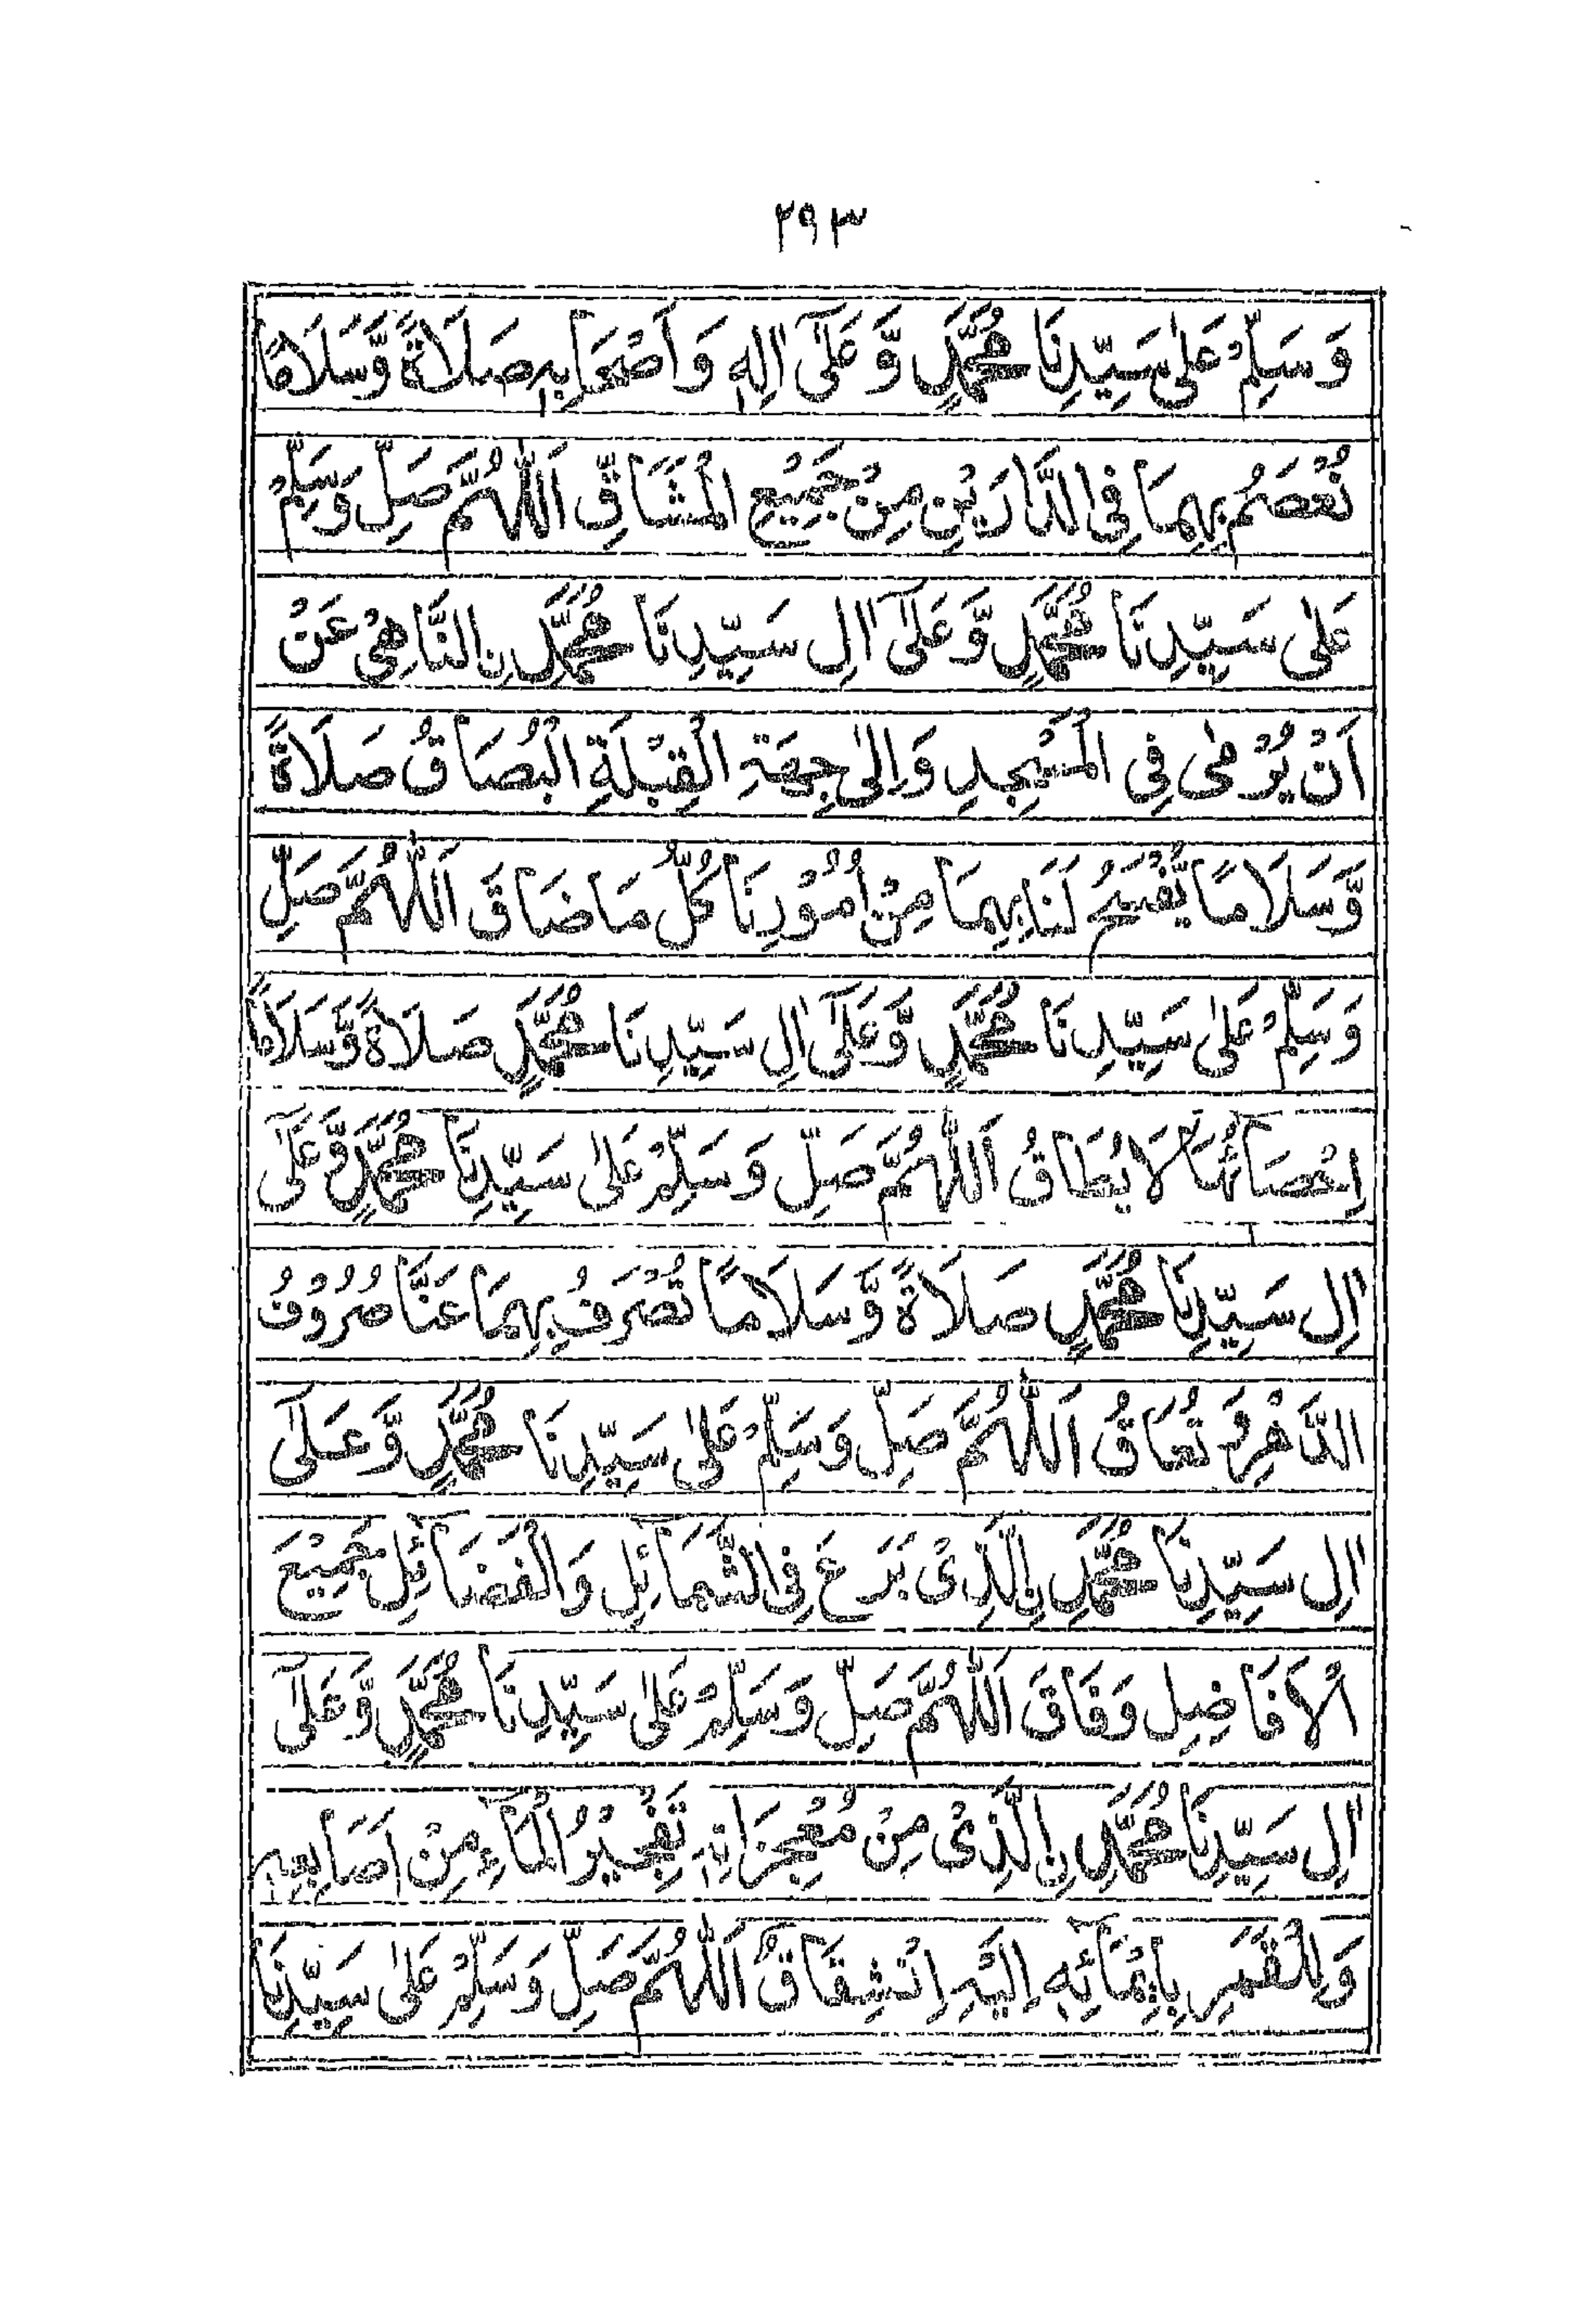 ۲۹۳
وَسَلِّمْ عَلٰى سَيِّدِنَا مُحَمَّدٍ وَّعَلٰٓى اٰلِهٖ وَاَصْحَابِهٖ صَلَاةً وَّسَلَامًا
نُعْصَمُ بِهِمَا فِى الدَّارَيْنِ مِنْ جَمِيْعِ الْمَشَاقِّ اَللّٰهُمَّ صَلِّ وَسَلِّمْ
عَلٰى سَيِّدِنَا مُحَمَّدٍ وَّعَلٰٓى اٰلِ سَيِّدِنَا مُحَمَّدِنِ النَّاهِىْ عَنْ
اَنْ يُرْمٰى فِى الْمَسْجِدِ وَاِلٰى جِهَةِ الْقِبْلَةِ الْبُصَاقُ صَلَاةً
وَّسَلَامًا يُّفْتَحُ لَنَا بِهِمَا مِنْ اُمُوْرِنَا كُلُّ مَا ضَاقَ اَللّٰهُمَّ صَلِّ
وَسَلِّمْ عَلٰى سَيِّدِنَا مُحَمَّدٍ وَّعَلٰٓى اٰلِ سَيِّدِنَا مُحَمَّدٍ صَلَاةً وَّسَلَامًا
اِحْصَائُهُمَا لَا يُطَاقُ اَللّٰهُمَّ صَلِّ وَسَلِّمْ عَلٰى سَيِّدِنَا مُحَمَّدٍ وَّعَلٰٓى
اٰلِ سَيِّدِنَا مُحَمَّدٍ صَلَاةً وَّسَلَامًا تُصْرَفُ بِهِمَا عَنَّا صُرُوْفُ
الدَّهْرِ وَ تُعَاقُ اَللّٰهُمَّ صَلِّ وَسَلِّمْ عَلٰى سَيِّدِنَا مُحَمَّدٍ وَّعَلٰٓى
اٰلِ سَيِّدِنَا مُحَمَّدِنِ الَّذِىْ بَرَعَ فِى الشَّمَائِلِ وَالْفَضَائِلِ جَمِيْعَ
الْاَفَاضِلِ وَفَاقَ اَللّٰهُمَّ صَلِّ وَسَلِّمْ عَلٰى سَيِّدِنَا مُحَمَّدٍ وَّعَلٰٓى
اٰلِ سَيِّدِنَا مُحَمَّدِنِ الَّذِىْ مِنْ مُعْجِزَاتِهٖ تَفْجِيْرُ الْمَآءِ مِنْ اَصَابِعِهٖ
وَلِلْقَمَرِ بِاِيْمَآئِهٖ اِلَيْهِ اِنْشِقَاقٌ اَللّٰهُمَّ صَلِّ وَسَلِّمْ عَلٰى سَيِّدِنَا